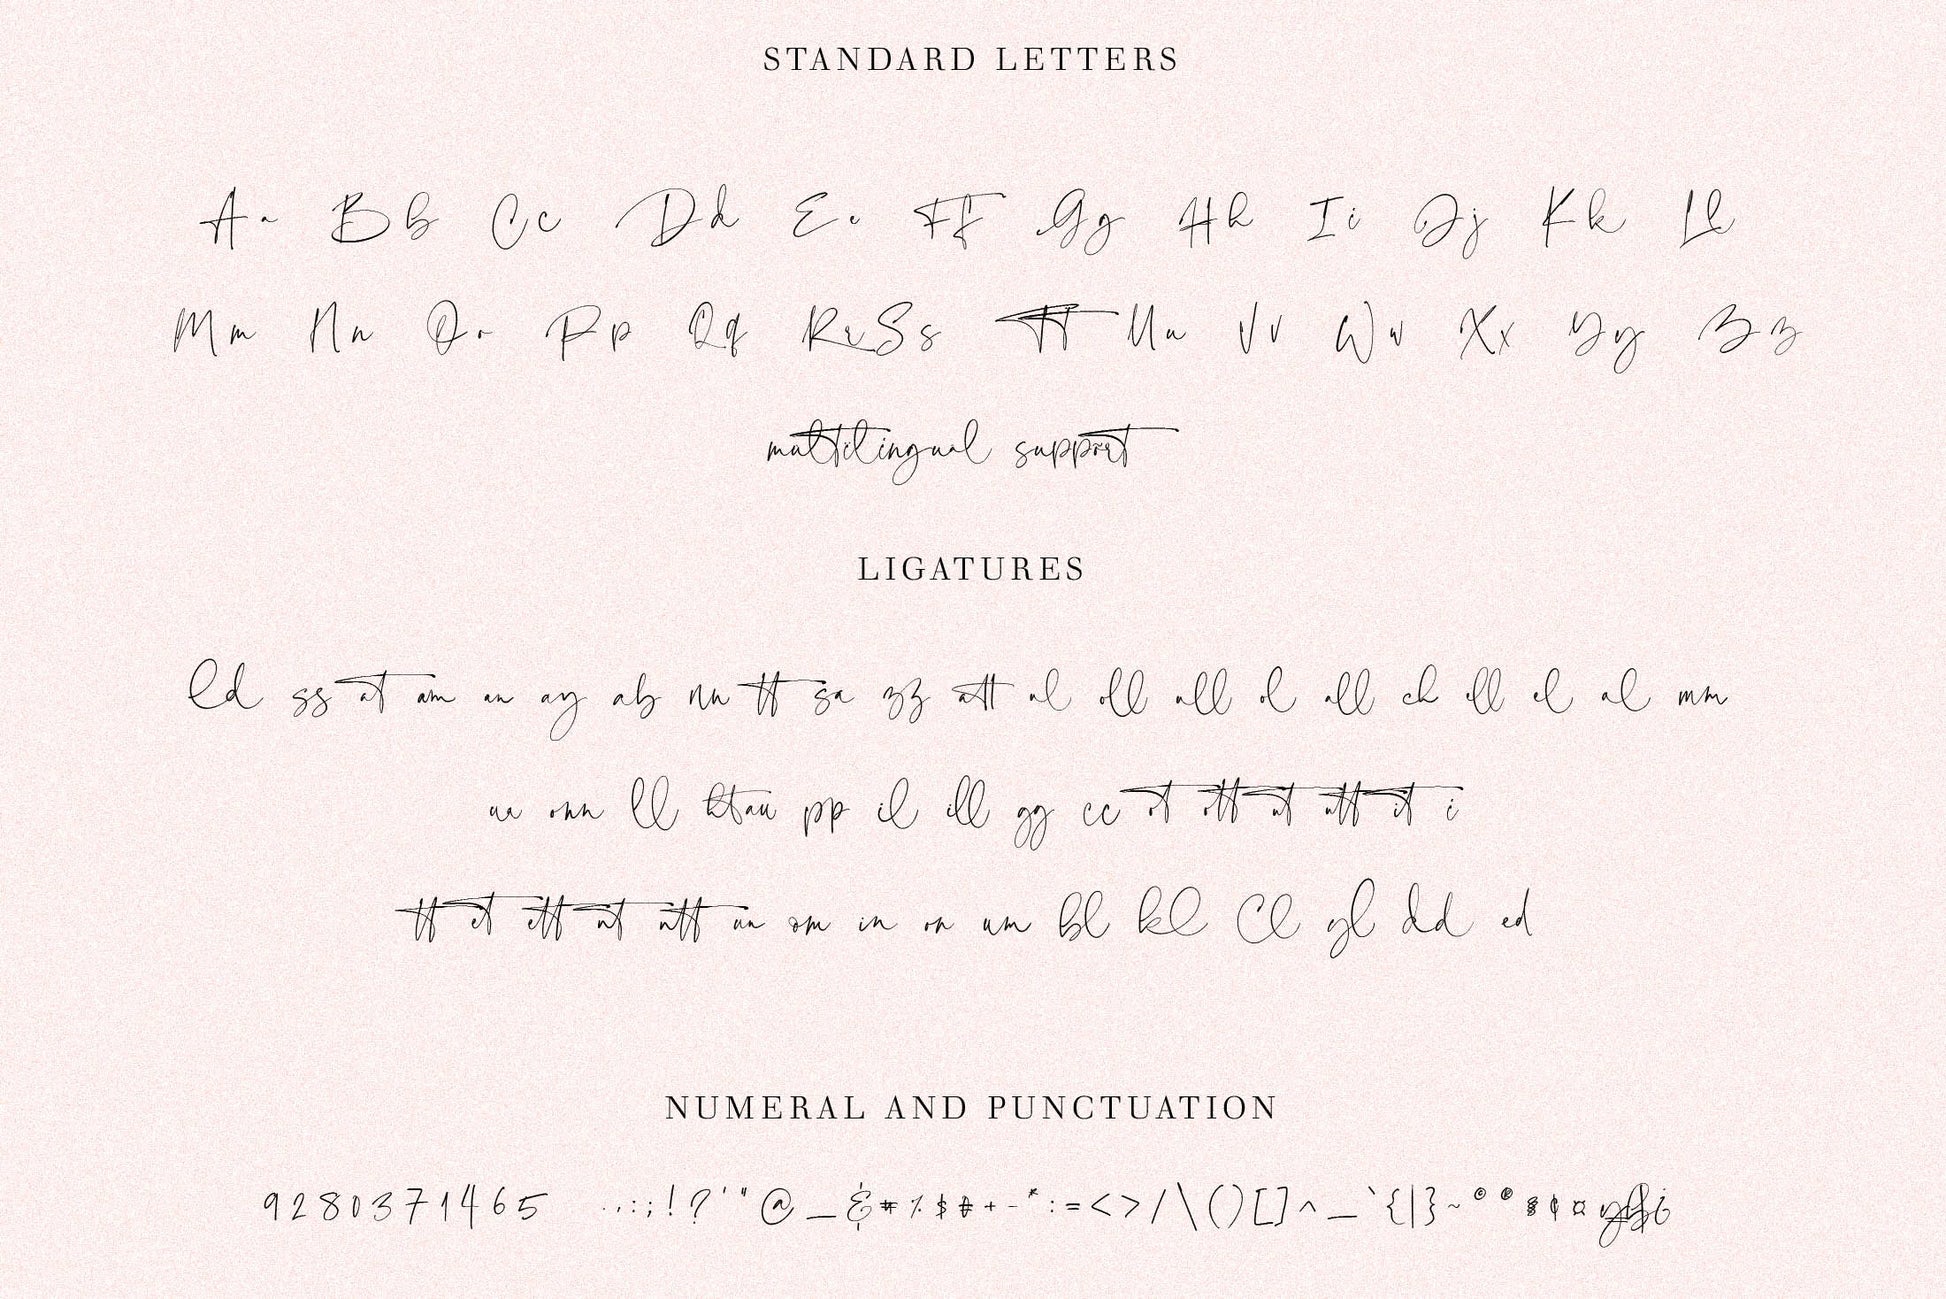 STANDARD LETTERS
Aa Bb Cc Dd Ee Ff Gg Hh Ii Jj Kk Ll
Mm Nn Oo Pp Qq Rr Ss Tt Uu Vv Ww Xx Yy Zz
multilingual support
LIGATURES
ld ss at am an ay ab nn tt sa zz att ul oll ull ol all ch ell el al mm
ll pp il ill gg cc
tt et ett om in on um bl kl Cl yl dd ed
NUMERAL AND PUNCTUATION
9280371465 .,:;!?'"@_&*%$#+-*:=<>/\()[]^_`{|}~